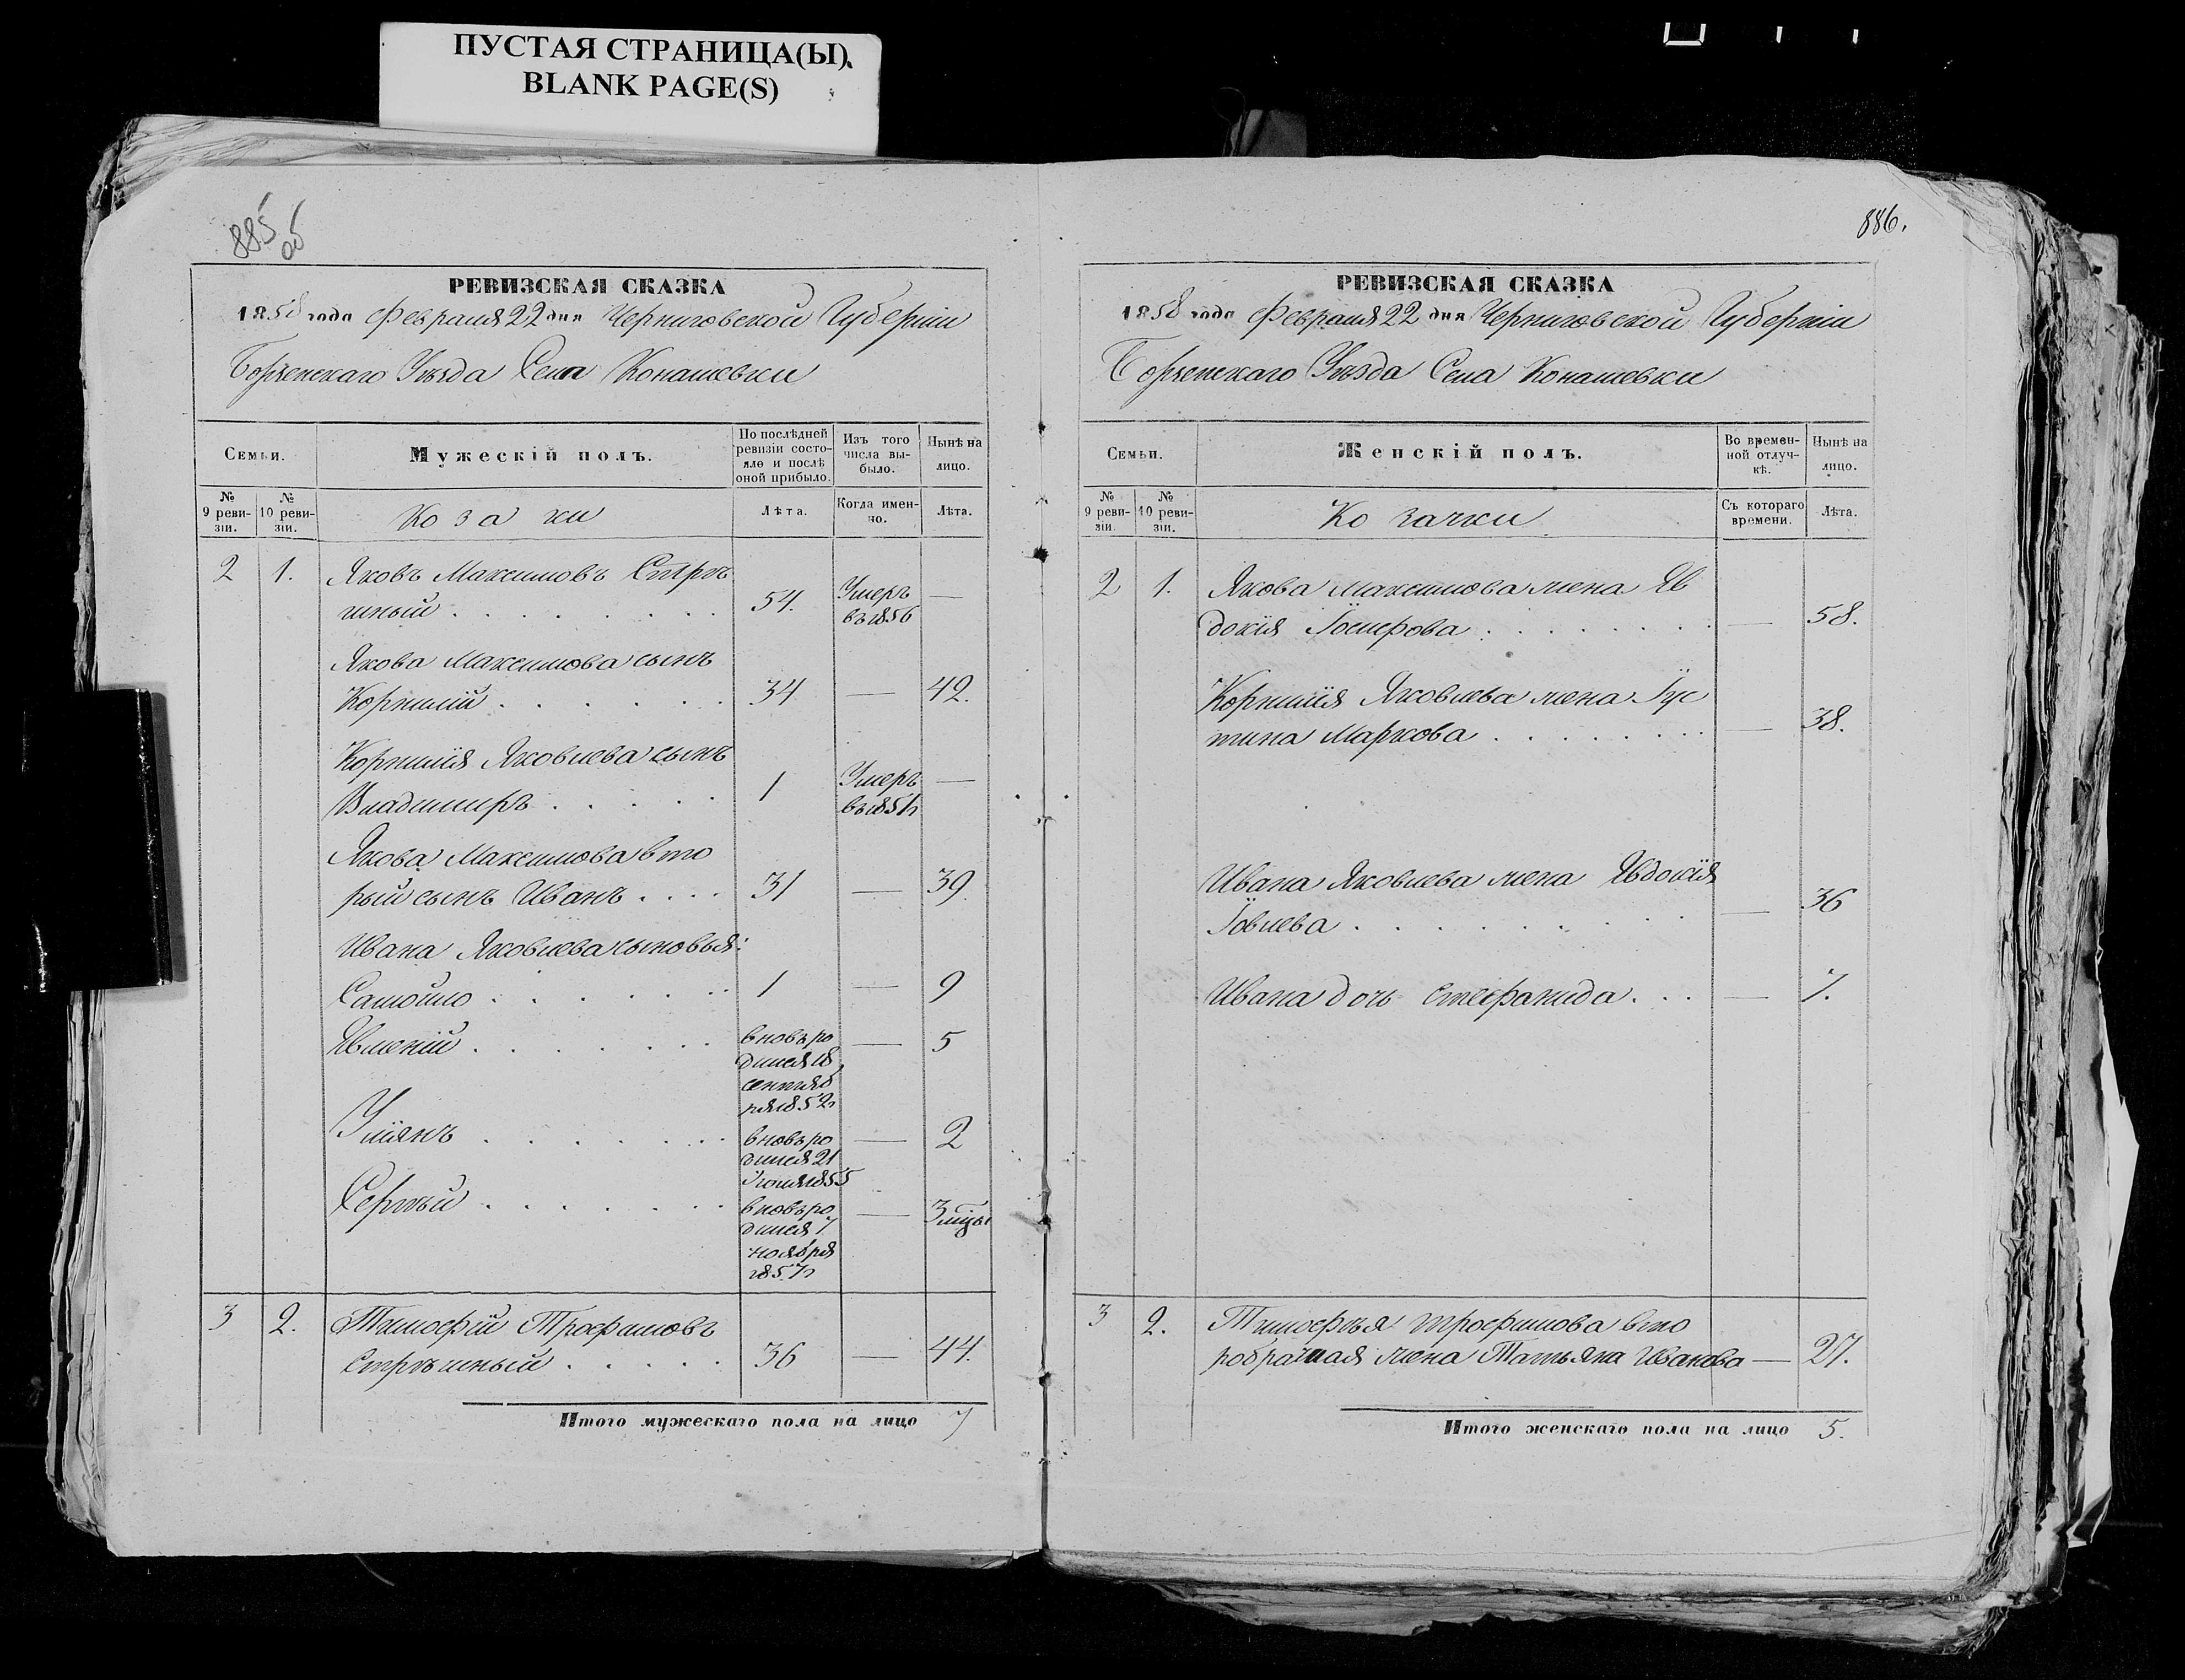 ПУСТАЯ СТРАНИЦА(Ы)
BLANK PAGE(S)
885
об
РЕВИЗСКАЯ СКАЗКА
1858 года Февраля 22 дня Черниговской Губерніи
Борзенскаго Уѣзда Села Конашевки
Семьи.
Мужескій полъ.
По послѣдней ревизіи состояло и послѣ оной прибыло.
Изъ того числа выбыло.
Нынѣ на лицо.
№ 9 ревизіи.
№ 10 ревизіи.
Козаки
Лѣта.
Когда именно.
Лѣта.
2 1. Яковъ Максимовъ Стрѣ
шный 54. Умеръ въ 1856 —
Якова Максимова сынъ
Корнилій 34 — 42.
Корнилія Яковлева сынъ
Владимиръ 1 Умеръ въ 1851 г —
Якова Максимова вто
рый сынъ Иванъ 31 — 39.
Ивана Яковлева сыновья:
Самойло 1 — 9
Евменій вновь ро — 5
дился 18
сентяб
ря 1852 г
Уліянъ вновь ро — 2
дился 21
Іюня 1855
Сергѣй вновь ро — 3 мцы
дился 7
ноября
1857 г
3 2. Тимофій Трофимовъ
Стрѣшный 36 — 44.
Итого мужескаго пола на лицо 7
886.
РЕВИЗСКАЯ СКАЗКА
1858 года Февраля 22 дня Черниговской Губерніи
Борзенскаго Уѣзда Села Конашевки
Семьи.
Женскій полъ.
Во временной отлучкѣ.
Нынѣ на лицо.
№ 9 ревизіи.
№ 10 ревизіи.
Козачки
Съ котораго времени.
Лѣта.
2 1. Якова Максимова жена Ев
докія — 58.
Корнилія Яковлева жена Іус
тина Маркова — 38.
Ивана Яковлева жена Евдокія
Іовлева — 36
Ивана дочь Стефанида — 7.
3 2. Тимофѣя Трофимова вто
робрачная жена Татьяна Иванова — 27.
Итого женскаго пола на лицо 5.